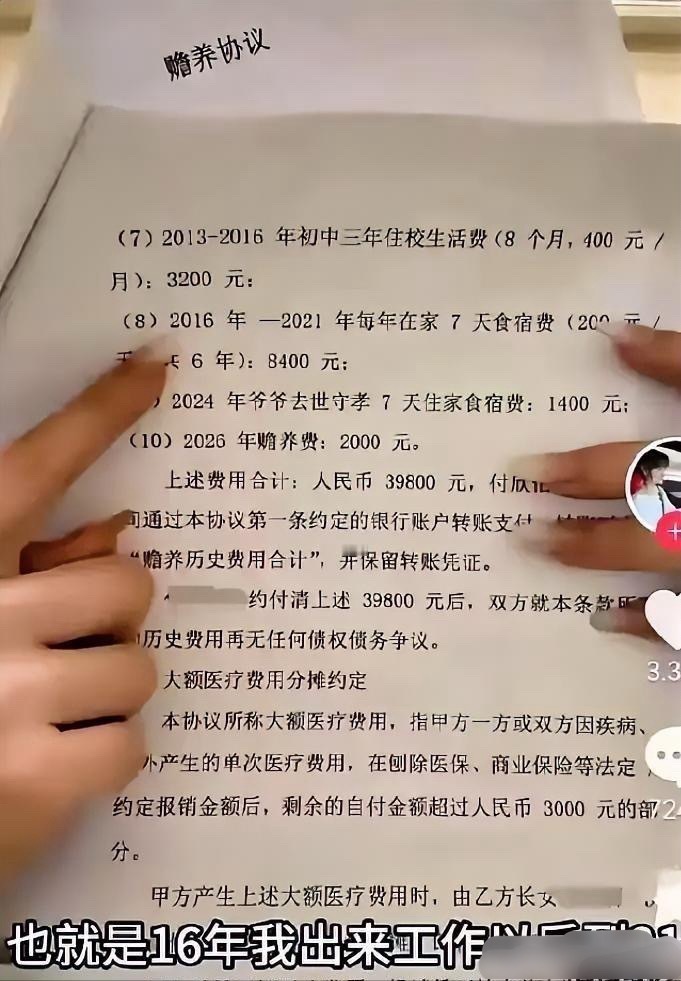 赡养协议
(7) 2013-2016 年初中三年住校生活费(8 个月, 400 元/
月): 3200 元;
(8) 2016 年 —2021 年每年在家 7 天食宿费(200 元/
共 6 年): 8400 元;
2024 年爷爷去世守孝 7 天住家食宿费: 1400 元;
(10) 2026 年赡养费: 2000 元。
上述费用合计: 人民币 39800 元, 付欣
间通过本协议第一条约定的银行账户转账支付
“赡养历史费用合计”, 并保留转账凭证。
约付清上述 39800 元后, 双方就本条款所
历史费用再无任何债权债务争议。
大额医疗费用分摊约定
本协议所称大额医疗费用, 指甲方一方或双方因疾病、
外产生的单次医疗费用, 在刨除医保、商业保险等法定
约定报销金额后, 剩余的自付金额超过人民币 3000 元的部
分。
甲方产生上述大额医疗费用时, 由乙方长女
也就是16年我出来工作以后到21
3.3
724